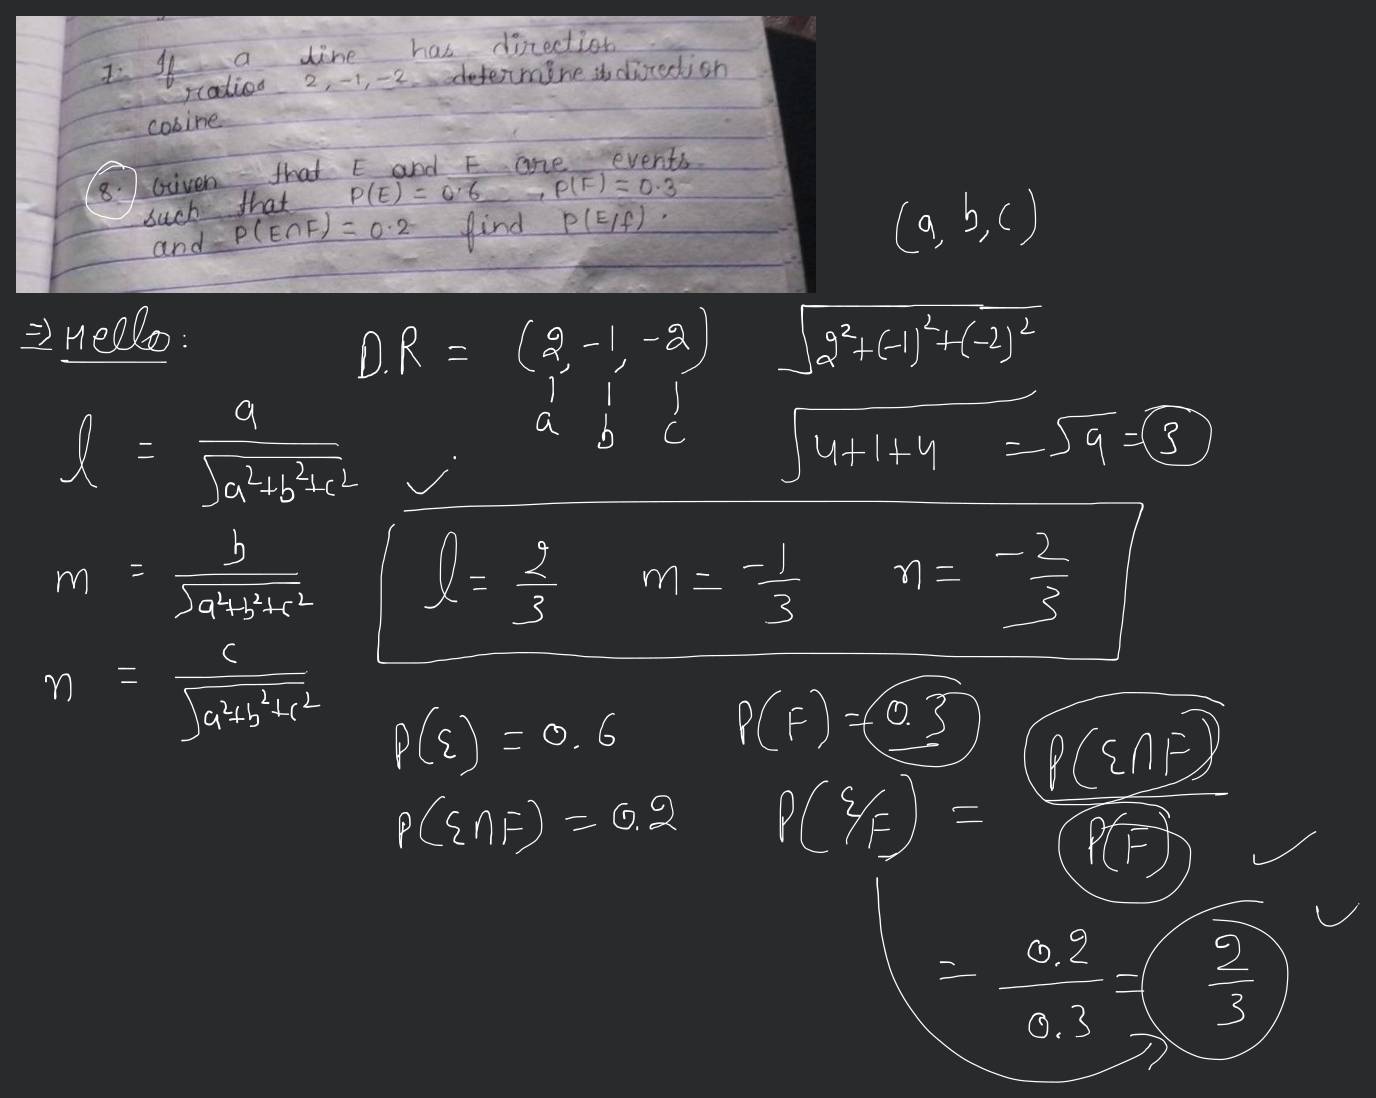 7. If a line has direction
ratios 2, -1, -2 determine its direction
cosine
8. Given that E and F are events
such that P(E) = 0.6 , P(F) = 0.3
and P(E∩F) = 0.2 find P(E/f).
(a, b, c)
⇒ Hello:
D.R = (2, -1, -2)
a b c
√2²+(-1)²+(-2)²
√4+1+4 = √9 = 3
l = a/√a²+b²+c²
m = b/√a²+b²+c²
n = c/√a²+b²+c²
l = 2/3 m = -1/3 n = -2/3
P(E) = 0.6 P(F) = 0.3
P(E∩F) = 0.2 P(E/F) = P(E∩F)/P(F)
= 0.2/0.3 = 2/3